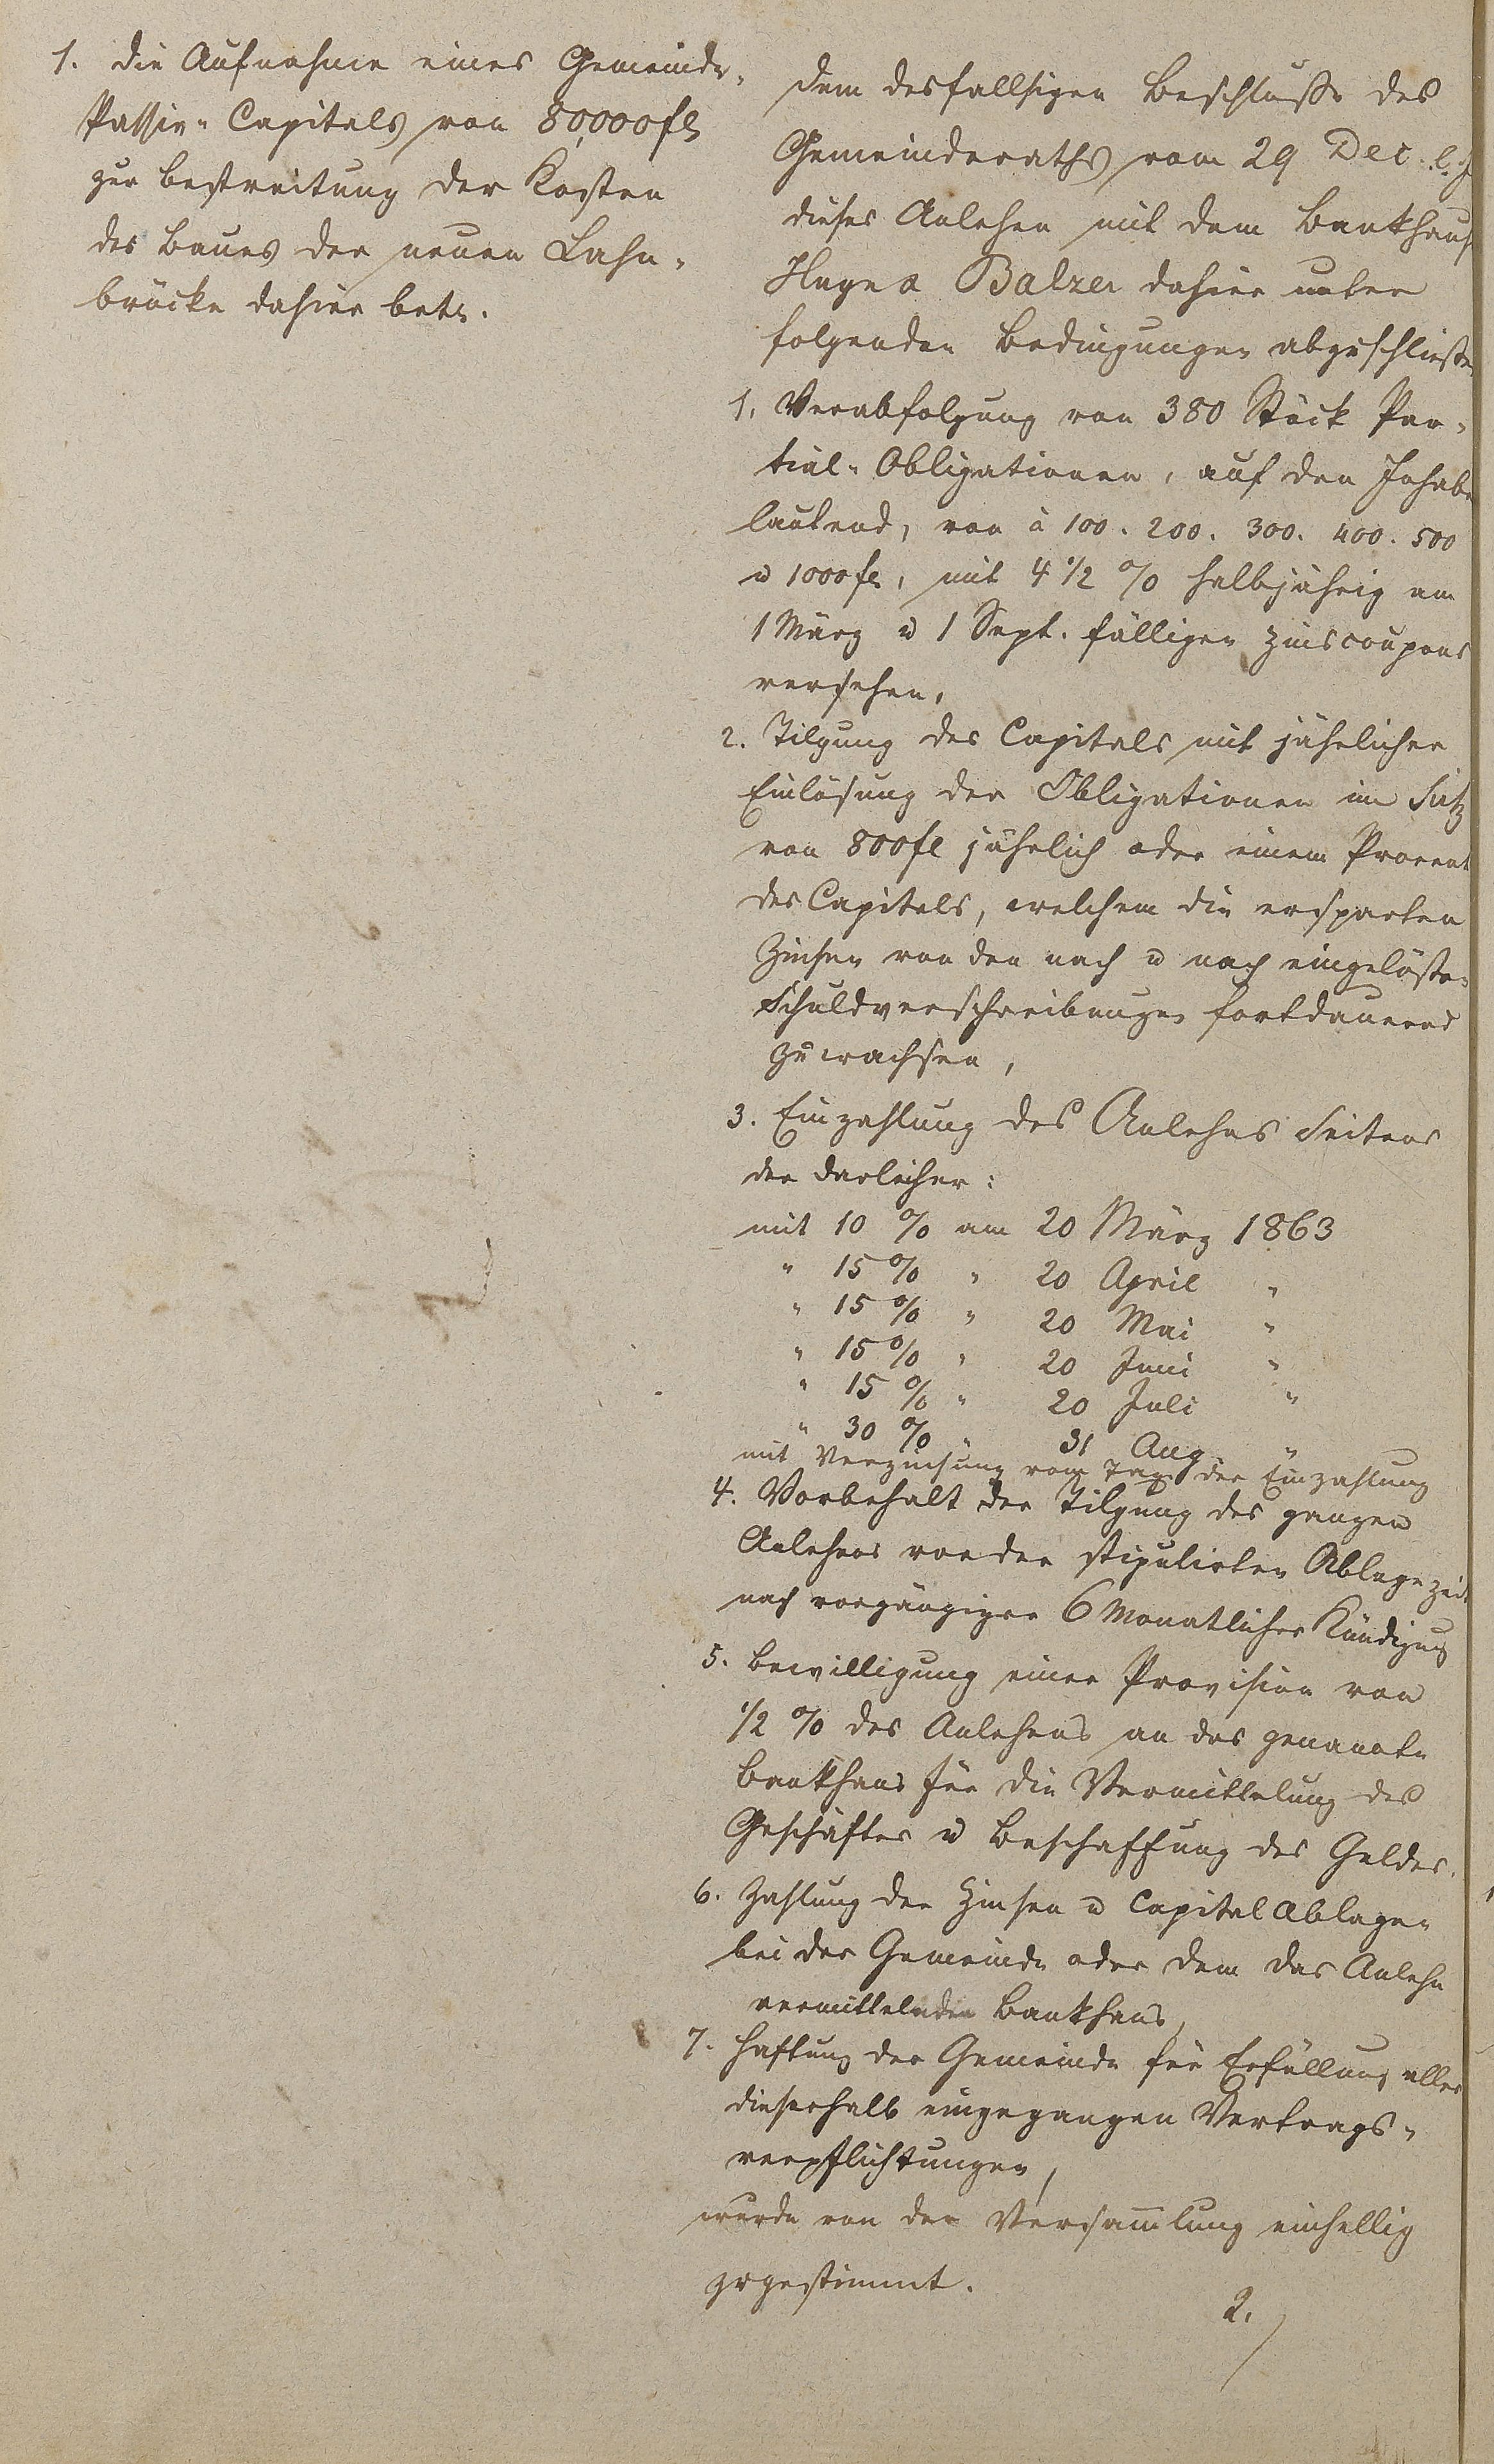 1. Die Aufnahme eines Gemeinde-
Passiv-Capitals von 80,000 fl
zur Bestreitung der Kosten
des Baues der neuen Lahn-
brücke dahier betr.
dem desfallsigen Beschlusse des
Gemeinderaths vom 29 Dec. l. J
dieses Anlehen mit dem Bankhaus
Herz & Balzer dahier unter
folgenden Bedingungen abzuschließen
1. Verabfolgung von 380 Stück Par-
tial-Obligationen, auf den Inhaber
lautend, von à 100. 200. 300. 400. 500
u 1000 fl, mit 4 1/2 % halbjährig am
1 März u 1 Sept. fälligen Zinscoupons
versehen,
2. Tilgung des Capitals mit jährlicher
Einlösung der Obligationen im Satz
von 800 fl jährlich oder einem Procent
des Capitals, welchem die ersparten
Zinsen von den nach u nach eingelösten
Schuldverschreibungen fortdauernd
zuwachsen,
3. Einzahlung des Anlehns Seitens
der Darleiher:
mit 10 % am 20 März 1863
" 15 % " 20 April "
" 15 % " 20 Mai "
" 15 % " 20 Juni "
" 15 % " 20 Juli "
" 30 % " 31 Aug. "
mit Verzinsung vom Tage der Einzahlung
4. Vorbehalt der Tilgung des ganzen
Anlehens vor der stipulirten Ablagezeit
nach vorgängiger 6 Monatlicher Kündigung
5. Bewilligung einer Provision von
1/2 % des Anlehens an das genannte
Bankhaus für die Vermittelung des
Geschäftes u Beschaffung des Geldes.
6. Zahlung der Zinsen u Capital Ablagen
bei der Gemeinde oder dem das Anlehn
vermittelnden Bankhaus,
7. Haftung der Gemeinde für Erfüllung aller
dieserhalb eingegangen Vertrags-
verpflichtungen,
wurde von der Versam̅lung einhellig
zugestimmt.
2.